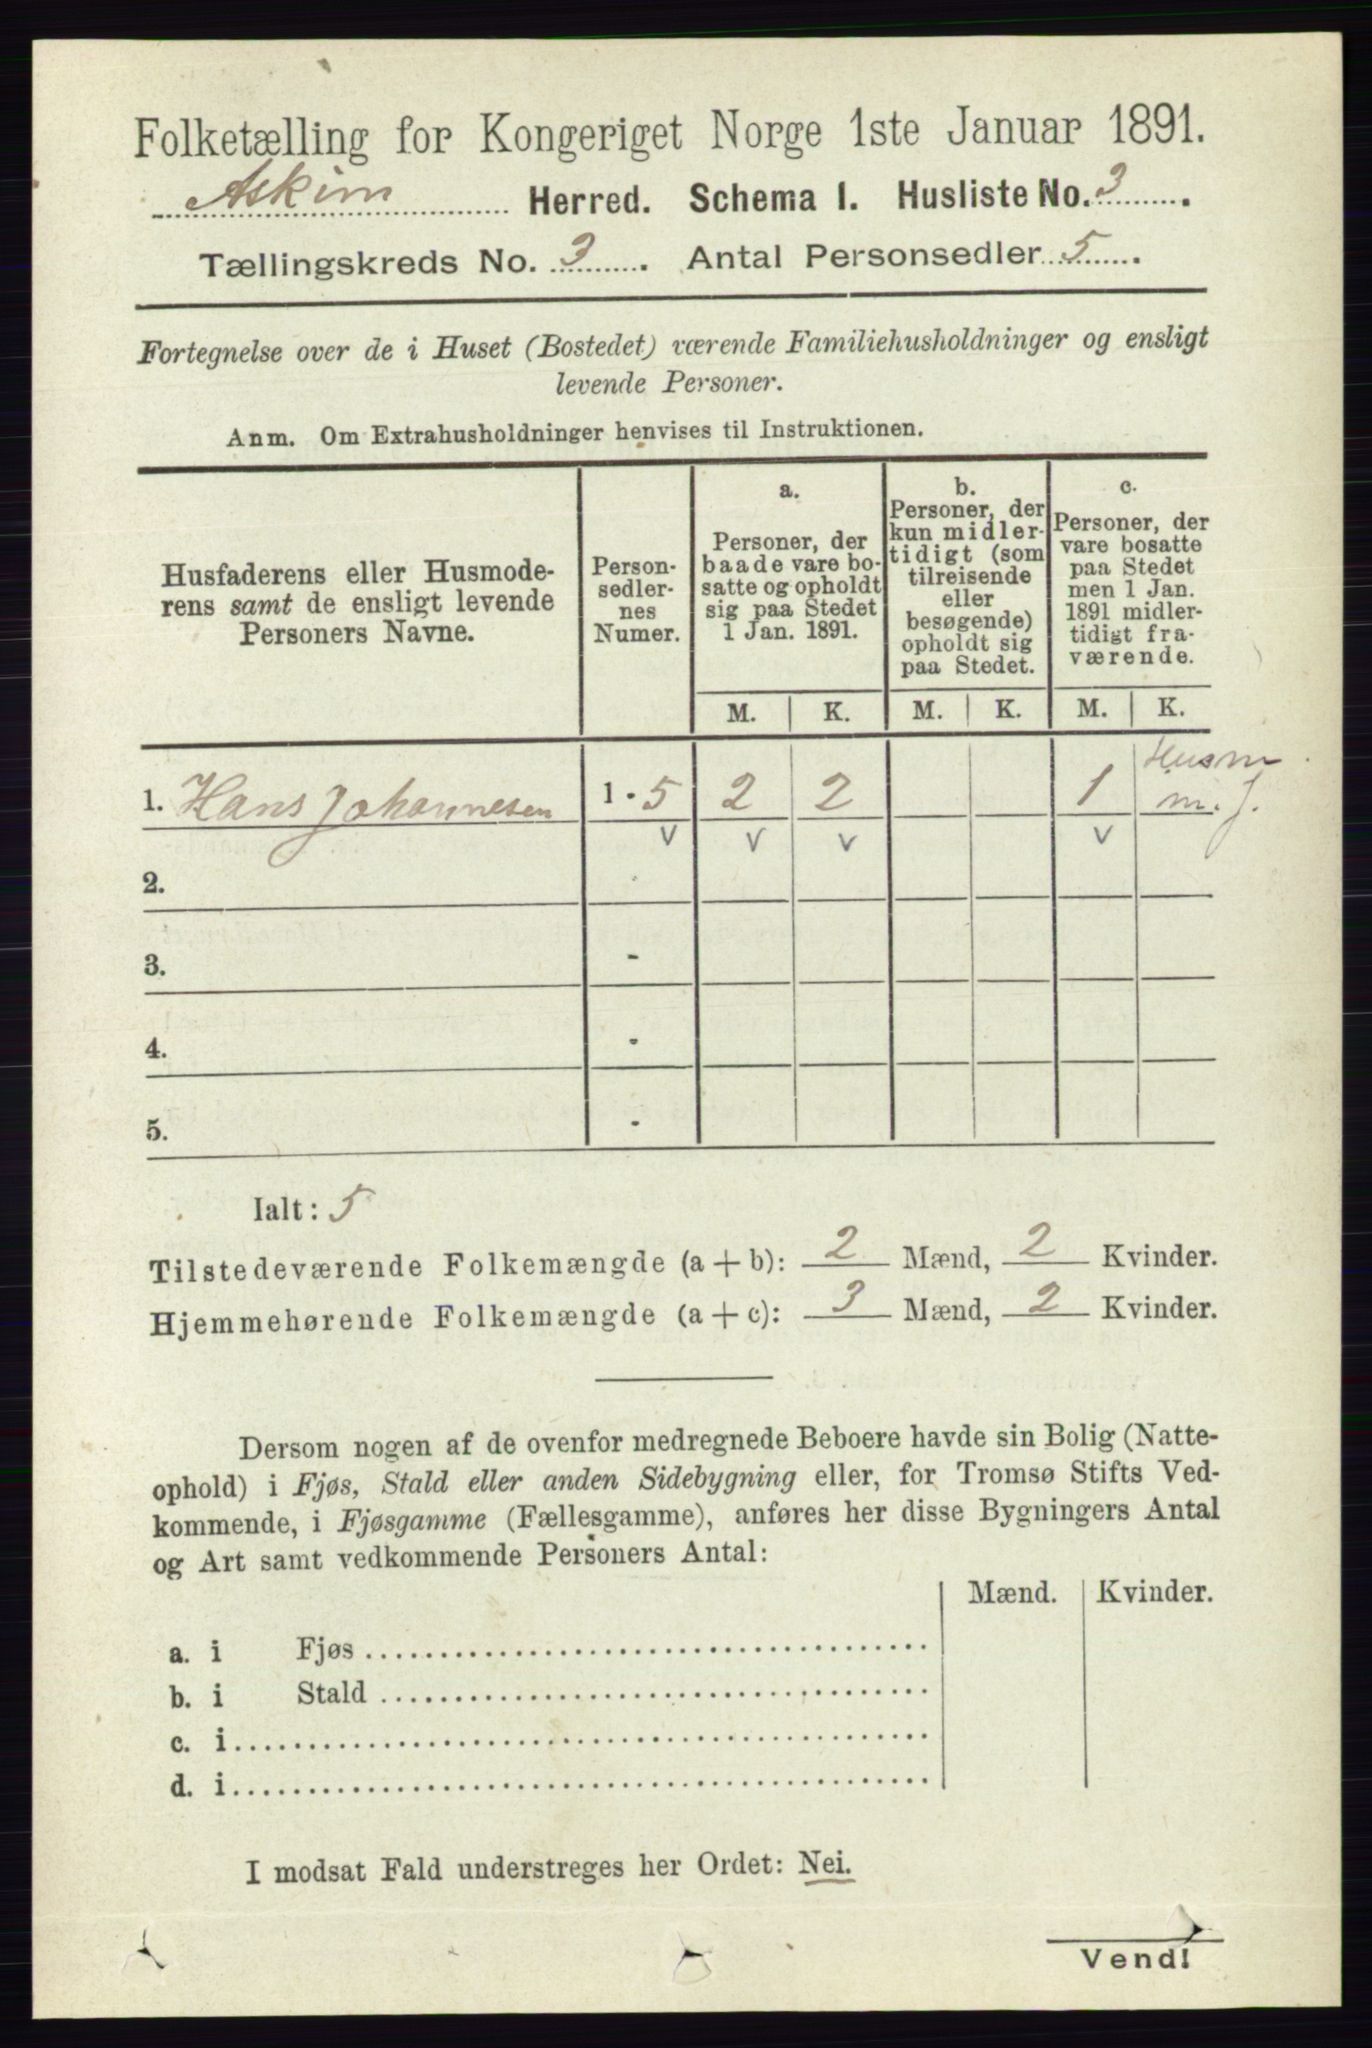 Folketælling for Kongeriget Norge 1ste Januar 1891.
Askim Herred. Schema I. Husliste No. 3.
Tællingskreds No. 3. Antal Personsedler 5.
Fortegnelse over de i Huset (Bostedet) værende Familiehusholdninger og ensligt
levende Personer.
Anm. Om Extrahusholdninger henvises til Instruktionen.
Husfaderens eller Husmode-
rens samt de ensligt levende
Personers Navne.
Person-
sedler-
nes
Numer.
a.
Personer, der
baade vare bo-
satte og opholdt
sig paa Stedet
1 Jan. 1891.
b.
Personer, der
kun midler-
tidigt (som
tilreisende
eller
besøgende)
opholdt sig
paa Stedet.
c.
Personer, der
vare bosatte
paa Stedet
men 1 Jan.
1891 midler-
tidigt fra-
værende.
M. K. M. K. M. K.
Husm
1. Hans Johannesen 1 - 5 2 2 1 m. j.
v v v v
2. -
3. -
4. -
5. -
Ialt: 5
Tilstedeværende Folkemængde (a + b): 2 Mænd, 2 Kvinder.
Hjemmehørende Folkemængde (a + c): 3 Mænd, 2 Kvinder.
Dersom nogen af de ovenfor medregnede Beboere havde sin Bolig (Natte-
ophold) i Fjøs, Stald eller anden Sidebygning eller, for Tromsø Stifts Ved-
kommende, i Fjøsgamme (Fællesgamme), anføres her disse Bygningers Antal
og Art samt vedkommende Personers Antal:
Mænd. Kvinder.
a. i Fjøs
b. i Stald
c. i
d. i
I modsat Fald understreges her Ordet: Nei.
Vend!